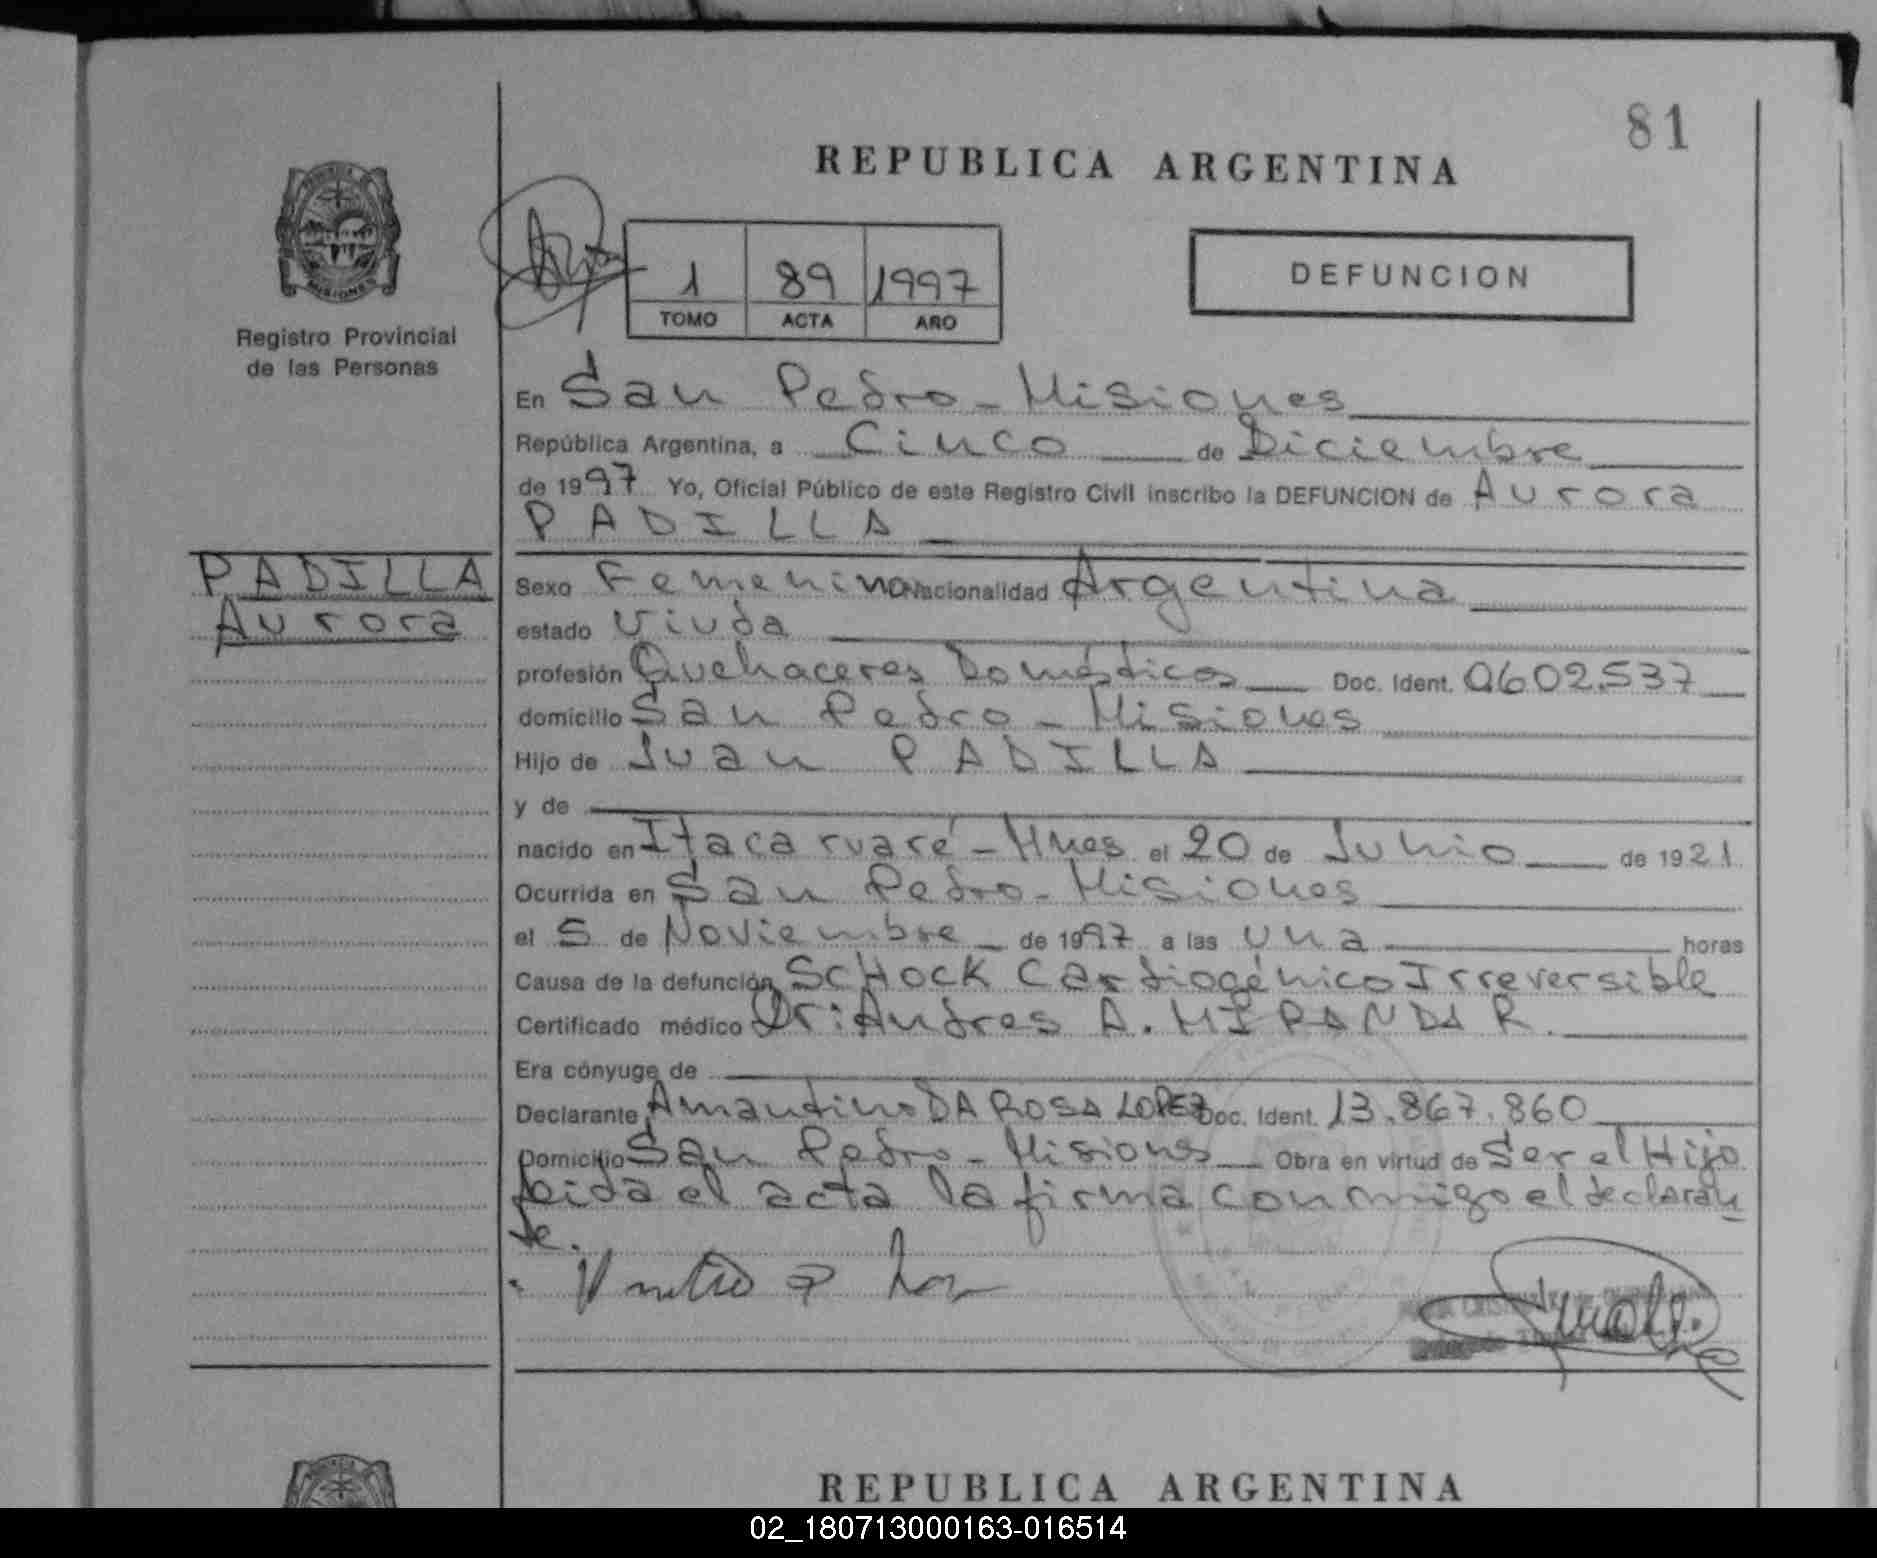 81
REPUBLICA ARGENTINA
Registro Provincial
de las Personas
1 89 1997
TOMO ACTA AÑO
DEFUNCION
En San Pedro - Misiones
República Argentina, a Cinco de Diciembre
de 1997 Yo, Oficial Público de este Registro Civil inscribo la DEFUNCION de Aurora
PADILLA
PADILLA
Aurora
Sexo Femenino Nacionalidad Argentina
estado Viuda
profesión Quehaceres Domésticos Doc. Ident. 0602.537
domicilio San Pedro - Misiones
Hijo de Juan PADILLA
y de
nacido en Itacaruaré - Mnes el 20 de Junio de 1921
Ocurrida en San Pedro - Misiones
el 5 de Noviembre de 1997 a las Una horas
Causa de la defunción SCHOCK Cardiogénico Irreversible
Certificado médico Dr: Andres A. MIRANDA R.
Era cónyuge de
Declarante Amantino DA ROSA LOPEZ Doc. Ident. 13.867.860
Domicilio San Pedro - Misiones Obra en virtud de Ser el Hijo
Leida el acta la firma conmigo el declaran
te.
REPUBLICA ARGENTINA
02_180713000163-016514